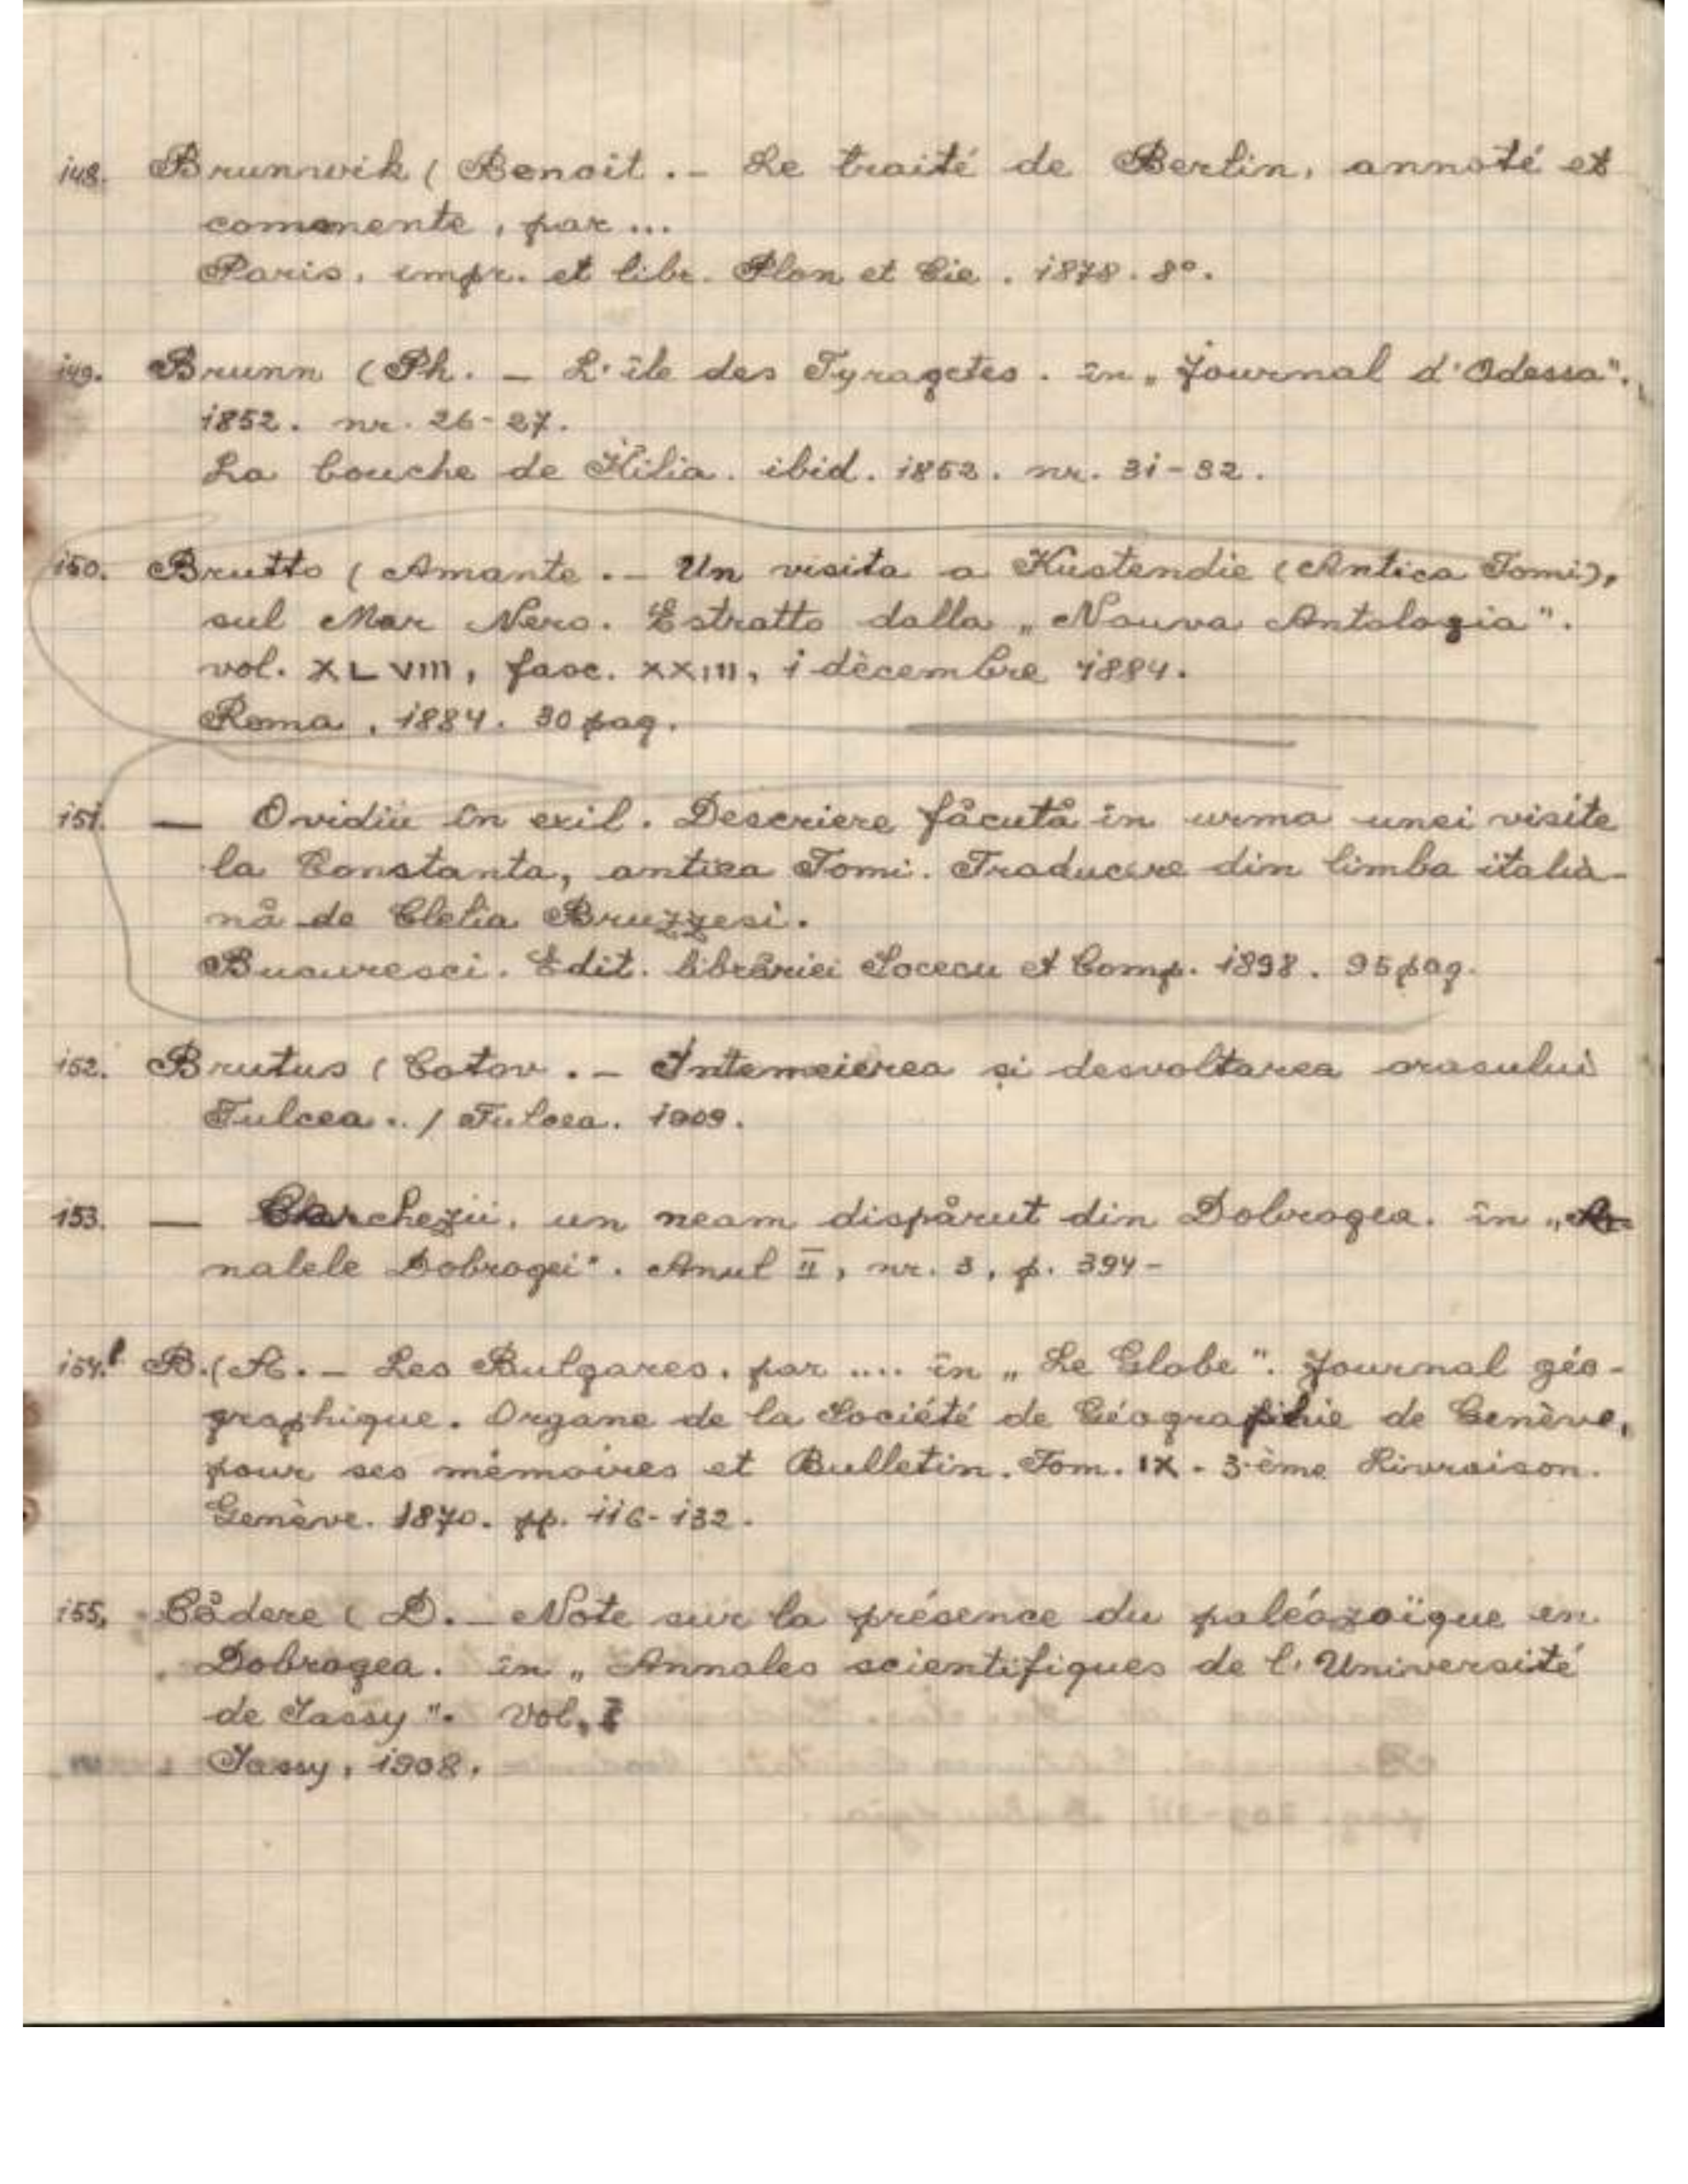 148. Brunnwik (Benoit .- Le traité de Berlin, annoté et
commenté, par ...
Paris, impr. et libr. Plon et Cie. 1878. 8°.
149. Brunn (Ph. - L'île des Tyragetes. în „Journal d'Odessa".
1852. nr. 26-27.
La bouche de Kilia. ibid. 1852. nr. 31-32.
150. Brutto (Amante .- Un visita a Kustendie (Antica Tomi),
sul Mar Nero. Estratto dalla „Nouva Antologia".
vol. XLVIII, fasc. XXIII, 1 dècembre 1884.
Roma, 1884. 30 pag.
151. — Ovidiu în exil. Descriere făcută în urma unei visite
la Constanta, antica Tomi. Traducere din limba italia-
nă de Cletia Bruzzesi.
Bucuresci. Edit. librăriei Socecu et Comp. 1898. 95 pag.
152. Brutus (Cotov .- Intemeierea și desvoltarea orasului
Tulcea.. / Tulcea. 1909.
153. — Cherchezii, un neam dispărut din Dobrogea. în „A-
nalele Dobrogei". Anul II, nr. 3, p. 394-
154. B.(A. - Les Bulgares, par .... în „Le Globe". Journal géo-
graphique. Organe de la Société de Géographie de Genève,
pour ses mémoires et Bulletin. Tom. IX - 3-ème Livraison.
Genève. 1870. pp. 116-132.
155. Cădere (D. - Note sur la présence du paléozoïque en
Dobrogea. în „Annales scientifiques de l'Université
de Jassy". Vol. I
Jassy, 1908.